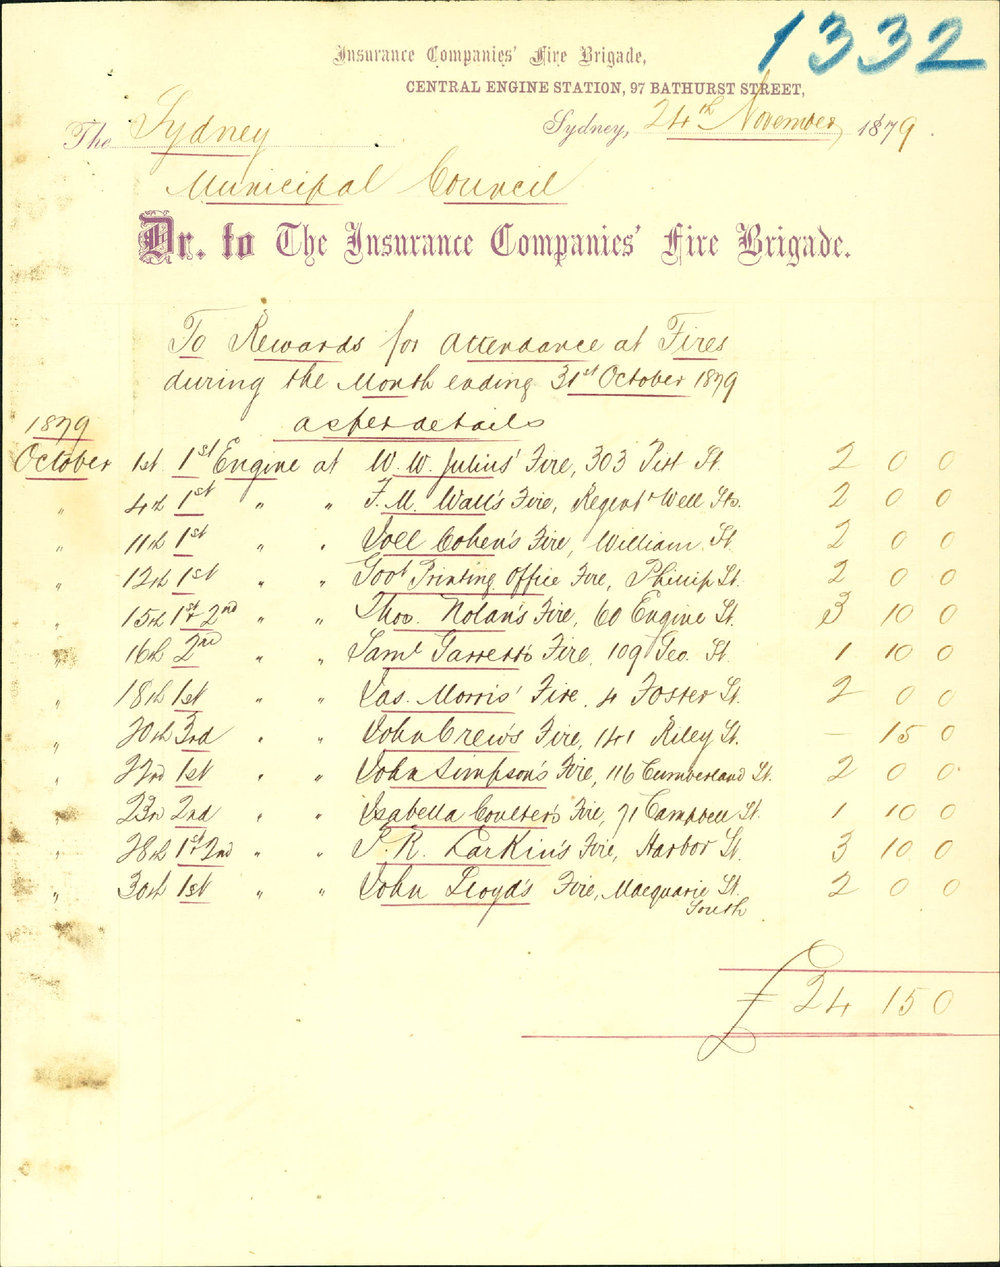 1332
Insurance Companies' Fire Brigade,
CENTRAL ENGINE STATION, 97 BATHURST STREET,
Sydney, 24th November, 1879.
The Sydney
Municipal Council
Dr. to The Insurance Companies' Fire Brigade.
To Rewards for Attendance at Fires
during the Month ending 31st October 1879
as per details
1879
October 1st 1st Engine at W. W. Julius' Fire, 303 Pitt St. 2 0 0
" 4th 1st " " F. M. Watt's Fire, Regent & Well Sts. 2 0 0
" 11th 1st " " Joel Cohen's Fire, William St. 2 0 0
" 12th 1st " " Govt Printing Office Fire, Phillip St. 2 0 0
" 15th 1st & 2nd " " Thos. Nolan's Fire, 60 Engine St. 3 10 0
" 16th 2nd " " Saml Garrett's Fire, 109 Geo. St. 1 10 0
" 18th 1st " " Jas. Morris' Fire, 4 Foster St. 2 0 0
" 20th 3rd " " John Crew's Fire, 141 Riley St. – 15 0
" 22nd 1st " " John Simpson's Fire, 116 Cumberland St. 2 0 0
" 23rd 2nd " " Isabella Coulter's Fire, 71 Campbell St. 1 10 0
" 28th 1st & 2nd " " R. Larkin's Fire, Harbor St. 3 10 0
" 30th 1st " " John Lloyd's Fire, Macquarie St.
South 2 0 0
£ 24 15 0